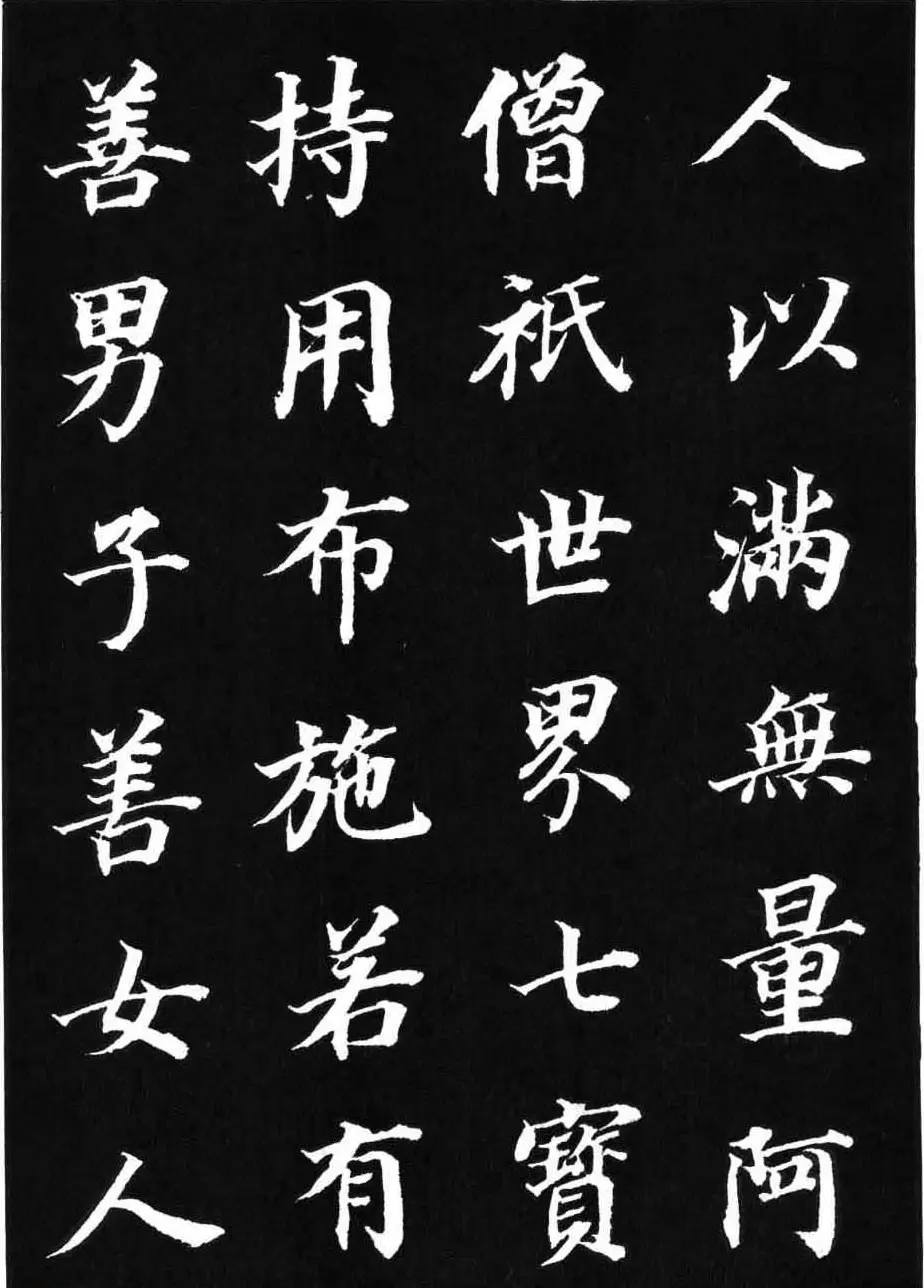 人以滿無量阿
僧祇世界七寶
持用布施若有
善男子善女人